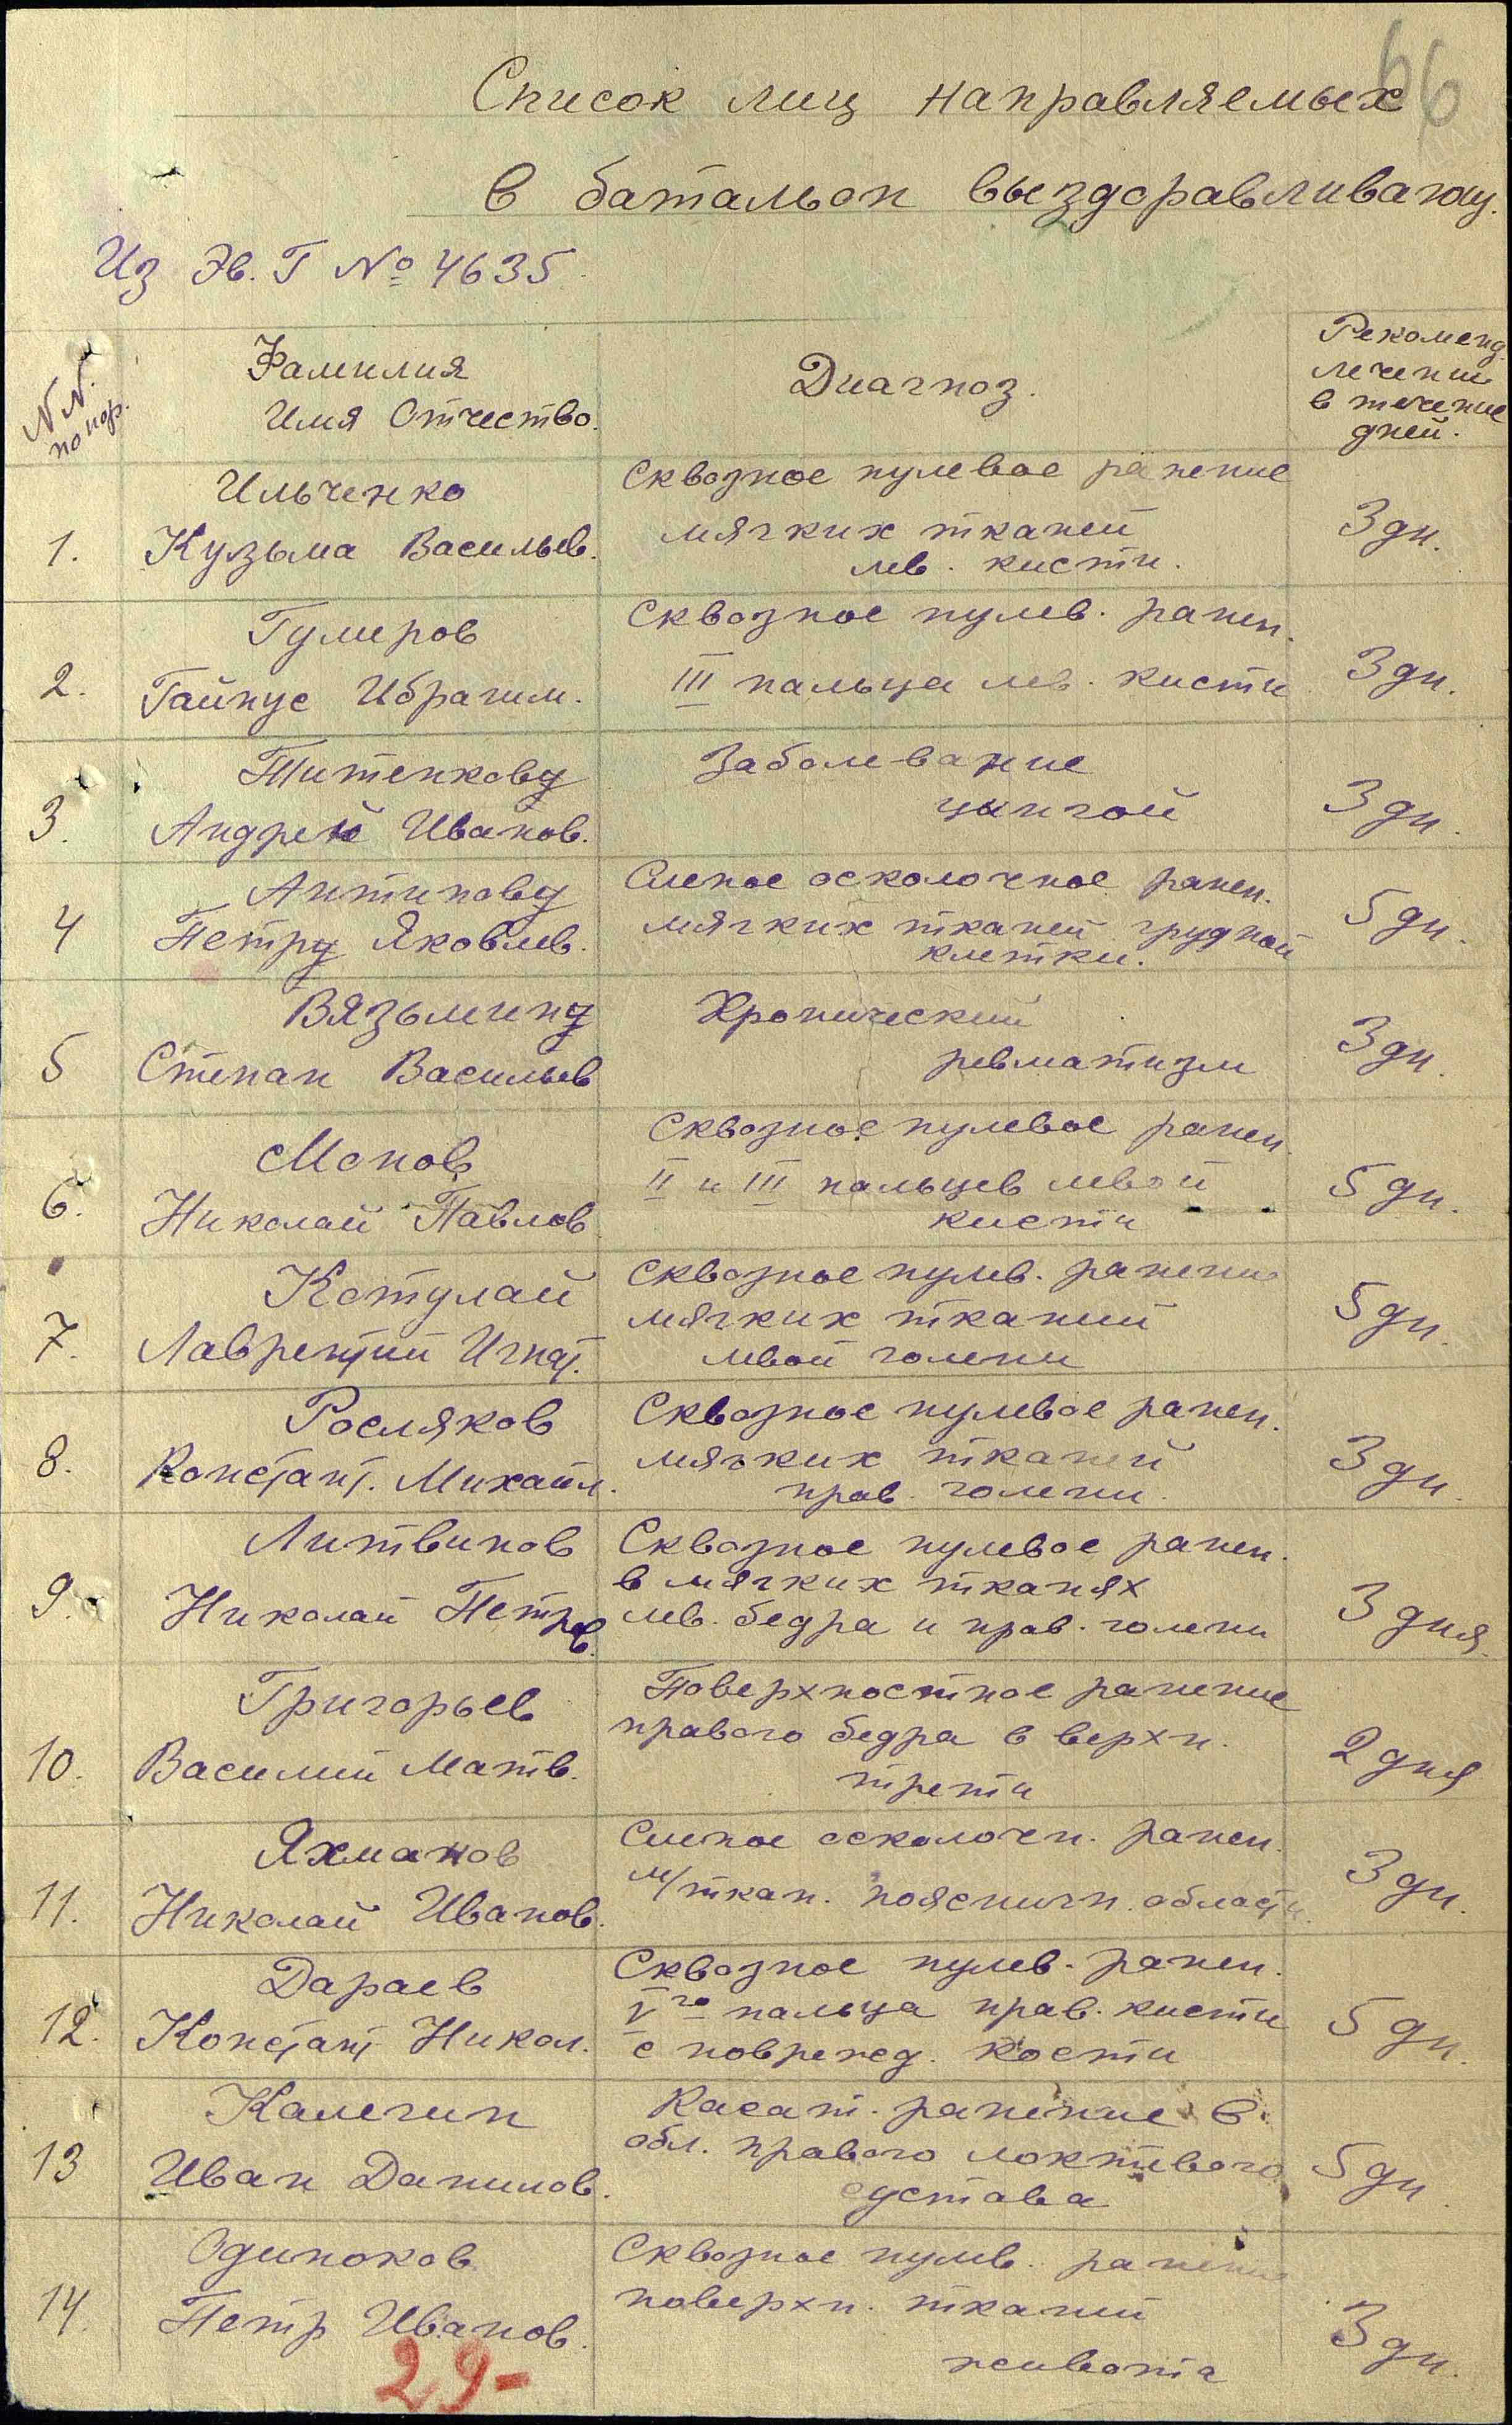 66
Список лиц направляемых
в батальон выздоравливающ.
Из Эв. Г № 4635
NN по пор.
Фамилия
Имя Отчество.
Диагноз.
Рекоменд.
лечение
в течение
дней.
1.
Ильченко
Кузьма Васильев.
Сквозное пулевое ранение
мягких тканей
лев. кисти.
3 дн.
2.
Гумеров
Ибрагим.
Сквозное пулев. ранен.
III пальца лев. кисти
3 дн.
3.
Титенкову
Андрей Иванов.
Заболевание
цынгой
3 дн.
4
Антипову
Петру Яковлев.
Слепое осколочное ранен.
мягких тканей грудной
клетки.
5 дн.
5
Вязьмину
Степан Васильев
Хронический
ревматизм
3 дн.
6.
Монов
Николай Павлов
Сквозное пулевое ранен
II и III пальцев левой
кисти
5 дн.
7.
Котулай
Лаврентий Игнат.
Сквозное пулев. ранение
мягких тканей
левой голени
5 дн.
8.
Росляков
Констант. Михаил.
Сквозное пулевое ранен.
мягких тканей
прав. голени.
3 дн.
9.
Литвинов
Николай Петров.
Сквозное пулевое ранен.
в мягких тканях
лев. бедра и прав. голени
3 дня.
10.
Григорьев
Василий Матв.
Поверхностное ранение
правого бедра в верхн.
трети
2 дня
11.
Яхманов
Николай Иванов.
Слепое осколочн. ранен.
м/ткан. поясничн. области.
3 дн.
12.
Дараев
Констант. Никол.
Сквозное пулев. ранен.
V го пальца прав. кисти
с поврежд. кости
5 дн.
13
Калегин
Иван Данилов.
Касат. ранение в
обл. правого локтевого
сустава
5 дн.
14.
Одиноков
Петр Иванов.
Сквозное пулев. ранение
поверхн. тканей
живота
3 дн.
29-